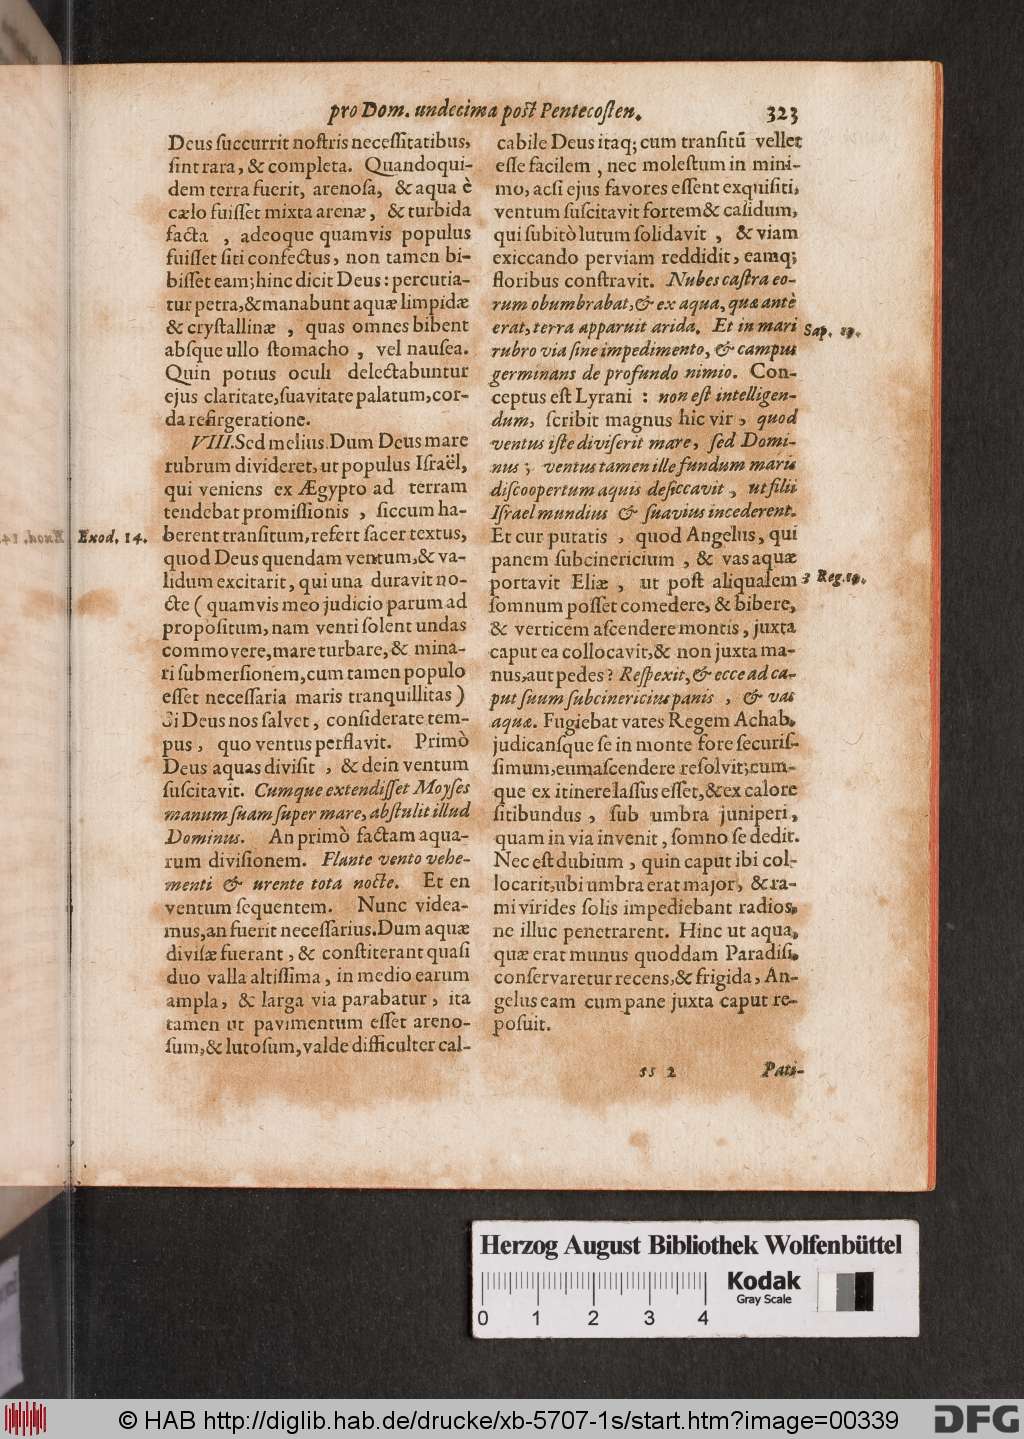 pro Dom. undecima post Pentecosten. 323
Deus succurrit nostris necessitatibus,
sint rara, & completa. Quandoqui-
dem terra fuerit, arenosa, & aqua è
cælo fuisset mixta arenæ, & turbida
facta , adeoque quamvis populus
fuisset siti confectus, non tamen bi-
bisset eam; hinc dicit Deus: percutia-
tur petra, & manabunt aquæ limpidæ
& crystallinæ , quas omnes bibent
absque ullo stomacho , vel nausea.
Quin potius oculi delectabuntur
ejus claritate, suavitate palatum, cor-
da refirgeratione.
VIII. Sed melius. Dum Deus mare
rubrum divideret, ut populus Israël,
qui veniens ex Ægypto ad terram
tendebat promissionis , siccum ha-
Exod. 14. berent transitum, refert sacer textus,
quod Deus quendam ventum, & va-
lidum excitarit, qui una duravit no-
cte ( quamvis meo judicio parum ad
propositum, nam venti solent undas
commovere, mare turbare, & mina-
ri submersionem, cum tamen populo
esset necessaria maris tranquillitas )
Si Deus nos salvet, considerate tem-
pus , quo ventus perflavit. Primò
Deus aquas divisit , & dein ventum
suscitavit. Cumque extendisset Moyses
manum suam super mare, abstulit illud
Dominus. An primò factam aqua-
rum divisionem. Flante vento vehe-
menti & urente tota nocte. Et en
ventum sequentem. Nunc videa-
mus, an fuerit necessarius. Dum aquæ
divisæ fuerant , & constiterant quasi
duo valla altissima , in medio earum
ampla, & larga via parabatur , ita
tamen ut pavimentum esset areno-
sum, & lutosum, valde difficulter cal-
cabile Deus itaq; cum transitũ vellet
esse facilem , nec molestum in mini-
mo, acsi ejus favores essent exquisiti,
ventum suscitavit fortem & calidum,
qui subitò lutum solidavit , & viam
exiccando perviam reddidit, eamq;
floribus constravit. Nubes castra eo-
rum obumbrabat, & ex aqua, quæ antè
erat, terra apparuit arida. Et in mari Sap. 19.
rubro via sine impedimento, & campus
germinans de profundo nimio. Con-
ceptus est Lyrani : non est intelligen-
dum, scribit magnus hic vir , quod
ventus iste diviserit mare, sed Domi-
nus ; ventus tamen ille fundum maris
discoopertum aquis desiccavit , ut filii
Israel mundius & suavius incederent.
Et cur putatis , quod Angelus, qui
panem subcinericium , & vas aquæ
portavit Eliæ , ut post aliqualem 3 Reg. 19.
somnum posset comedere, & bibere,
& verticem ascendere montis, juxta
caput ea collocavit, & non juxta ma-
nus, aut pedes? Respexit, & ecce ad ca-
put suum subcinericius panis , & vas
aquæ. Fugiebat vates Regem Achab,
judicansque se in monte fore securis-
simum, eum ascendere resolvit; cum-
que ex itinere lassus esset, & ex calore
sitibundus , sub umbra juniperi,
quam in via invenit, somno se dedit.
Nec est dubium , quin caput ibi col-
locarit, ubi umbra erat major, & ra-
mi virides solis impediebant radios,
ne illuc penetrarent. Hinc ut aqua,
quæ erat munus quoddam Paradisi,
conservaretur recens, & frigida, An-
gelus eam cum pane juxta caput re-
posuit.
ss 2 Pati-
Herzog August Bibliothek Wolfenbüttel
Kodak
Gray Scale
0 1 2 3 4
© HAB http://diglib.hab.de/drucke/xb-5707-1s/start.htm?image=00339
DFG